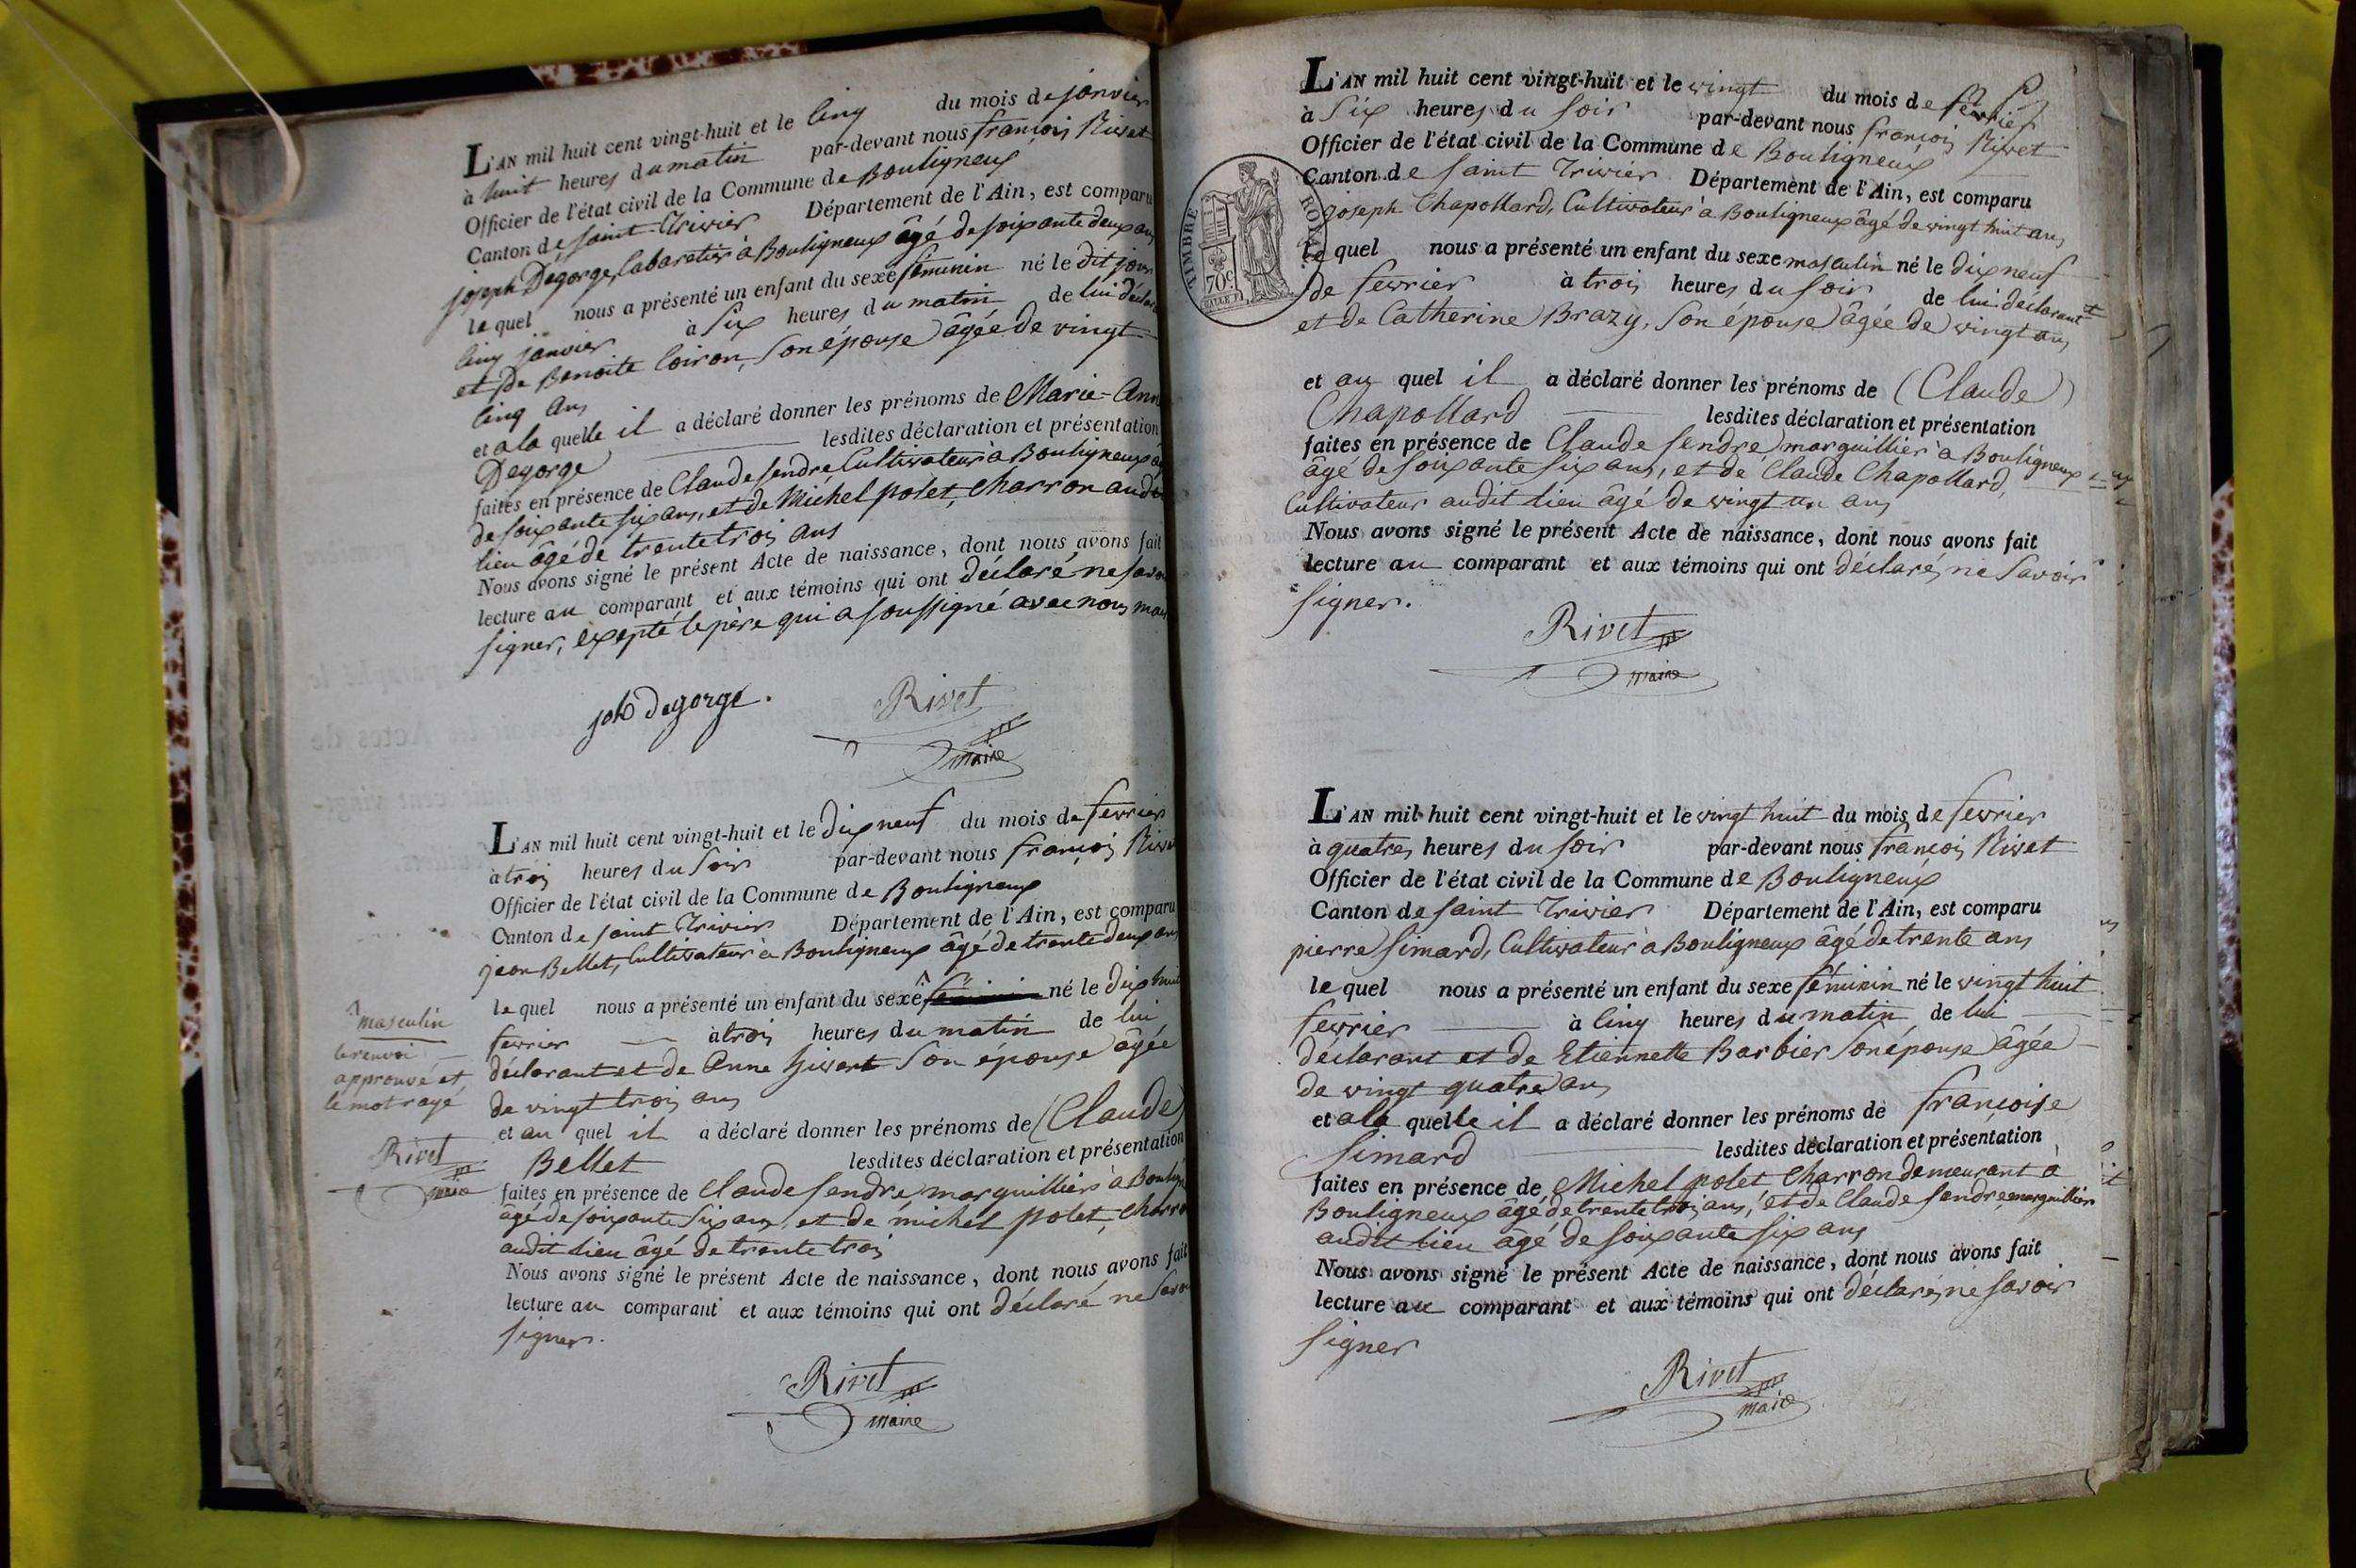 L'AN mil huit cent vingt-huit et le cinq du mois de janvier
à huit heures du matin par-devant nous françois Rivet
Officier de l'état civil de la Commune de Bouligneux
Canton de saint Trivier Département de l'Ain, est comparu
joseph Dégorge, Cabaretier à Bouligneux âgé de soixante deux ans
le quel nous a présenté un enfant du sexe féminin né le dit jour
cinq janvier à six heures du matin de lui déclarant
et de Benoite Coiron, son épouse âgée de vingt
cinq ans
et a la quelle il a déclaré donner les prénoms de Marie-Anne
Degorge lesdites déclaration et présentation
faites en présence de Claude sendre Cultivateur à Bouligneux âgé
de soixante six ans, et de Michel polet, charron audit
lieu âgé de trente trois ans
Nous avons signé le présent Acte de naissance, dont nous avons fait
lecture au comparant et aux témoins qui ont déclaré ne savoir
signer, excepté le père qui a soussigné avec nous maire
jph Degorge.
Rivet
maire
L'AN mil huit cent vingt-huit et le dix neuf du mois de fevrier
à trois heures du soir par-devant nous françois Rivet
Officier de l'état civil de la Commune de Bouligneux
Canton de saint Trivier Département de l'Ain, est comparu
jean Bellet, Cultivateur à Bouligneux âgé de trente deux ans
le quel nous a présenté un enfant du sexe féminin né le dix huit
fevrier à trois heures du matin de lui
déclarant et de Anne son épouse âgée
de vingt trois ans
et au quel il a déclaré donner les prénoms de (Claude)
Bellet lesdites déclaration et présentation
faites en présence de Claude sendre, marguillier à Bouligneux
âgé de soixante six ans, et de michel polet, charron
audit lieu âgé de trente trois
Nous avons signé le présent Acte de naissance, dont nous avons fait
lecture au comparant et aux témoins qui ont déclaré ne savoir
signer.
Rivet
maire
masculin
le renvoi
approuvé et
le mot rayé
Rivet
maire
L'AN mil huit cent vingt-huit et le vingt du mois de fevrier
à six heures du soir par-devant nous françois Rivet
Officier de l'état civil de la Commune de Bouligneux
Canton de saint Trivier Département de l'Ain, est comparu
joseph Chapollard, Cultivateur à Bouligneux âgé de vingt huit ans
le quel nous a présenté un enfant du sexe masculin né le dix neuf
de fevrier à trois heures du soir de lui déclarant
et de Catherine Brazy, son épouse âgée de vingt ans
et au quel il a déclaré donner les prénoms de (Claude)
Chapollard lesdites déclaration et présentation
faites en présence de Claude sendre marguillier à Bouligneux
âgé de soixante six ans, et de Claude Chapollard,
Cultivateur audit lieu âgé de vingt un ans
Nous avons signé le présent Acte de naissance, dont nous avons fait
lecture au comparant et aux témoins qui ont déclarés ne savoir
signer.
Rivet
maire
TIMBRE ROYAL
70c.
L'AN mil huit cent vingt-huit et le vingt huit du mois de fevrier
à quatre heures du soir par-devant nous françois Rivet
Officier de l'état civil de la Commune de Bouligneux
Canton de saint Trivier Département de l'Ain, est comparu
pierre simard, Cultivateur à Bouligneux âgé de trente ans
le quel nous a présenté un enfant du sexe féminin né le vingt huit
fevrier à cinq heures du matin de lui
déclarant et de Etiennette Barbier son épouse âgée
de vingt quatre ans
et a la quelle il a déclaré donner les prénoms de françoise
simard lesdites déclaration et présentation
faites en présence de Michel polet charron demeurant à
Bouligneux âgé de trente trois ans, et de Claude sendre marguillier
audit lieu âgé de soixante six ans
Nous avons signé le présent Acte de naissance, dont nous avons fait
lecture au comparant et aux témoins qui ont déclarés ne savoir
signer
Rivet
maire